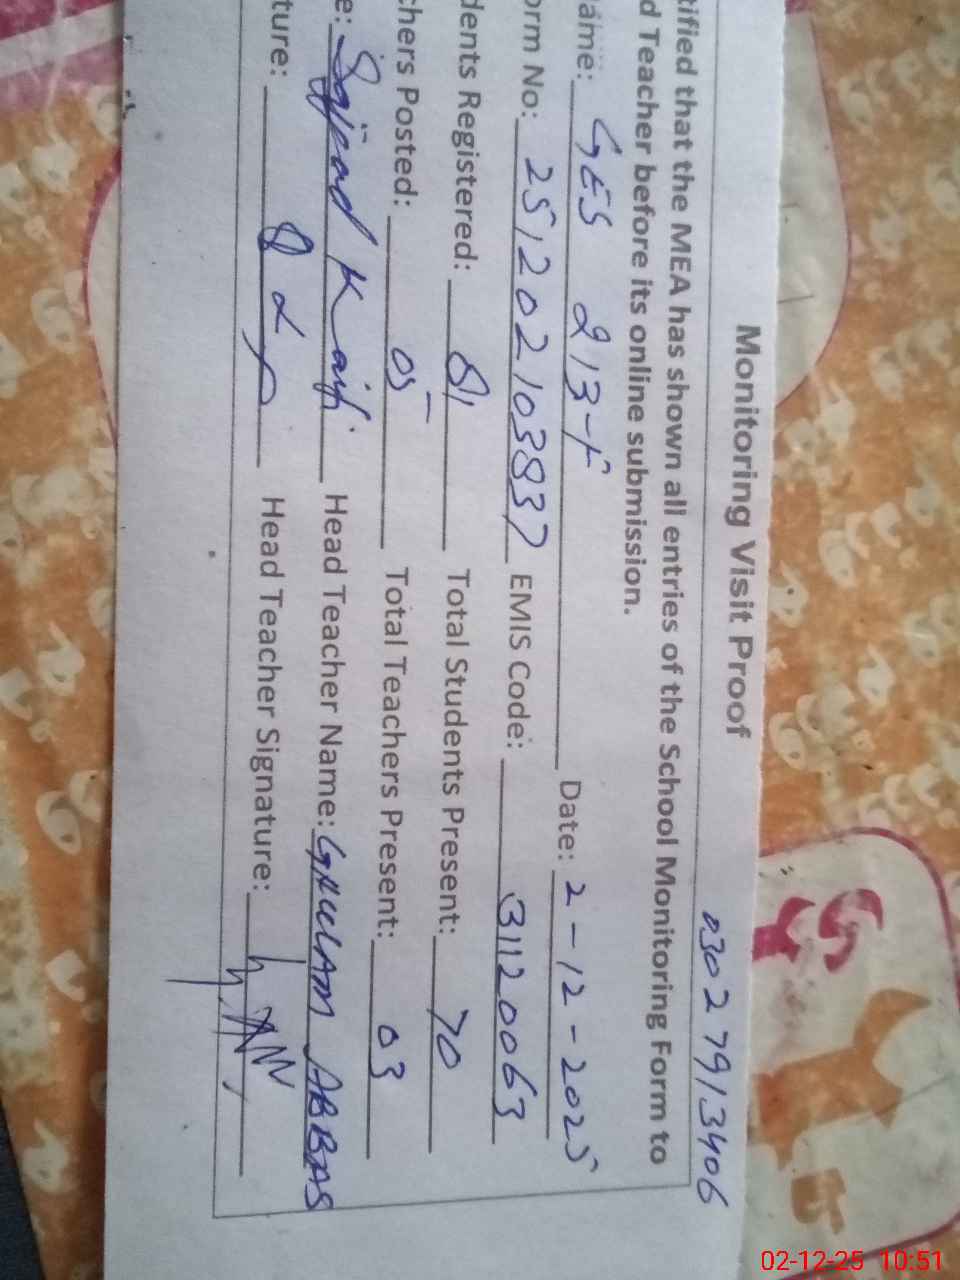 Monitoring Visit Proof 0302 7913406
tified that the MEA has shown all entries of the School Monitoring Form to
d Teacher before its online submission.
ame: GES 213-F Date: 2-12-2025
orm No: 251202103837 EMIS Code: 31120063
dents Registered: 81 Total Students Present: 70
chers Posted: 05 Total Teachers Present: 03
e: Sajjad K Head Teacher Name: GHULAM ABBAS
ture: Head Teacher Signature:
02-12-25 10:51